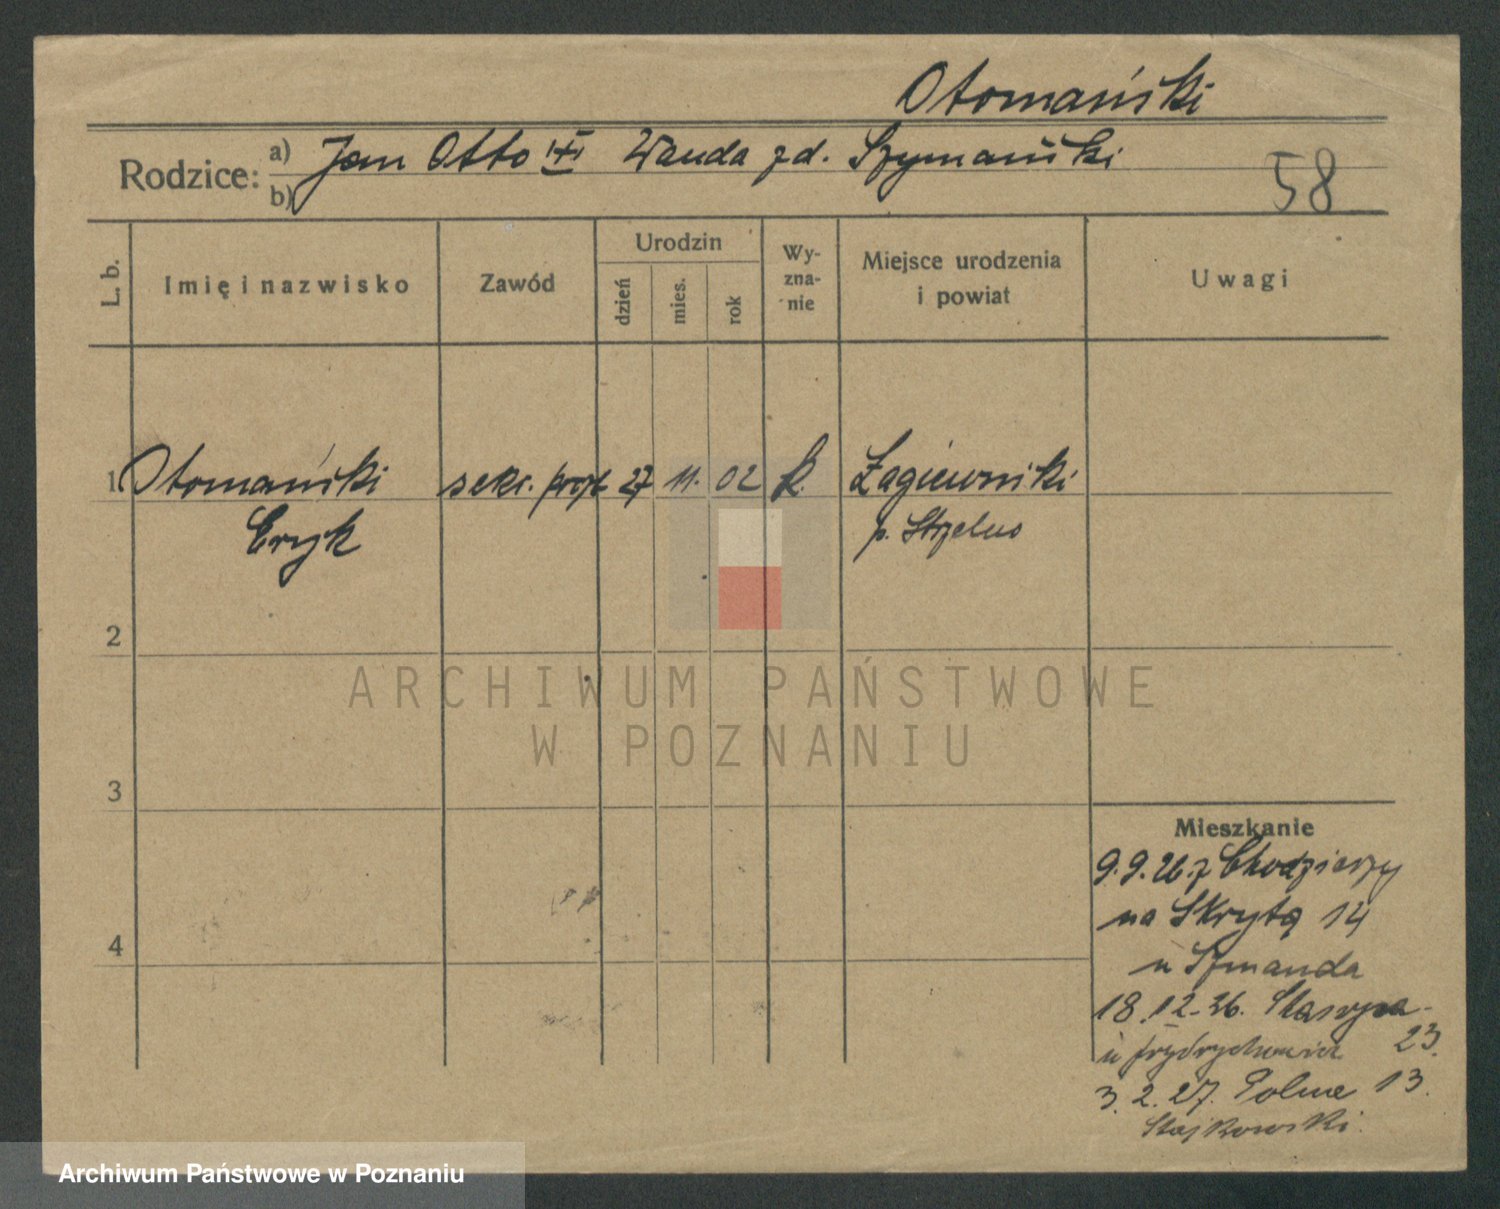 Otomański
Rodzice: a) Jan Otto Wanda zd. Szymański
b)
58
L. b.
Imię i nazwisko
Zawód
Urodzin
dzień
mies.
rok
Wy-
zna-
nie
Miejsce urodzenia
i powiat
Uwagi
1 Otomański sekr. 27 11. 02 k. Łagiewniki
Eryk p. Strzelno
2
3
4
ARCHIWUM PAŃSTWOWE
W POZNANIU
Mieszkanie
9.9.26. z Chodzieży
na Skrytą 14
u Szmanda
18.12.26. Staszyca
u Frydrychowicz 23.
3.2.27. Polna 13.
Stajkowski.
Archiwum Państwowe w Poznaniu